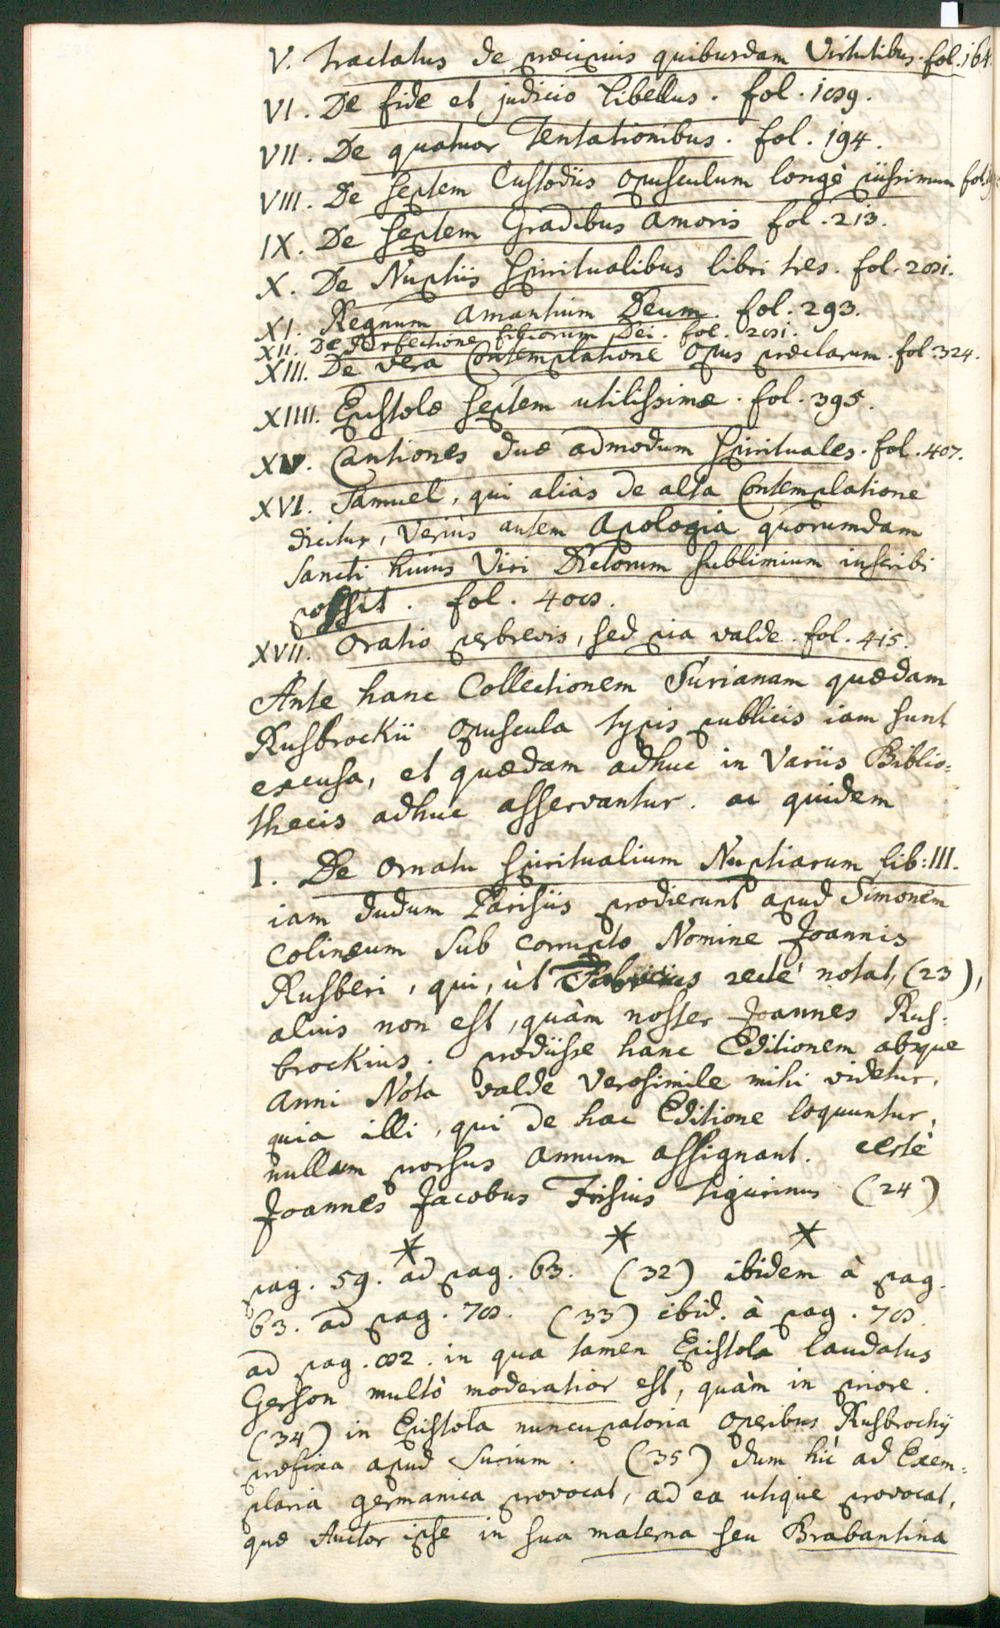 V. Tractatus de præcipuis quibusdam Virtutibus. fol. 164.
VI. De fide et judicio libellus. fol. 189.
VII. De quatuor Tentationibus. fol. 194.
VIII. De septem Custodiis opusculum longè piissimum fol.
IX. De septem Gradibus amoris fol. 213.
X. De Nuptiis spiritualibus libri tres. fol. 281.
XI. Regnum amantium Deum. fol. 293.
XII. De Perfectione filiorum Dei. fol. 281.
XIII. De vera Contemplatione opus præclarum. fol. 324.
XIIII. Epistolæ septem utilissimæ. fol. 395.
XV. Cantiones duæ admodum spirituales. fol. 407.
XVI. Samuel, qui alias de alta Contemplatione
dicitur, verius autem Apologia quorumdam
sancti huius Viri Dictorum sublimium inscribi
possit. fol. 408.
XVII. Oratio perbrevis, sed pia valde. fol. 415.
Ante hanc Collectionem Surianam quædam
Rusbrockii opuscula typis publicis iam sunt
excusa, et quædam adhuc in Variis Biblio=
thecis adhuc asservantur. ac quidem
I. De Ornatu spiritualium Nuptiarum lib: III.
iam dudum Parisiis prodierunt apud Simonem
Colinæum sub corrupto Nomine Joannis
Rusberi, qui, ùt Fabricius rectè notat, (23),
alius non est, quàm noster Joannes Rus=
brockius. prodiisse hanc Editionem absque
Anni Nota valde verosimile mihi videtur,
quia illi, qui de hac Editione loquuntur,
nullum prorsus annum assignant. certè
Joannes Jacobus Frisius Tigurinus (24)
* * *
pag. 59. ad pag. 63. (32) ibidem à pag.
63. ad pag. 78. (33) ibid. à pag. 78.
ad pag. 82. in qua tamen Epistola laudatus
Gerson multò moderatior est, quàm in priore.
(34) in Epistola nuncupatoria operibus Rusbrochij
præfixa apud Surium. (35) dum hic ad Exem=
plaria germanica provocat, ad ea utique provocat,
quæ Auctor ipse in sua materna seu Brabantina